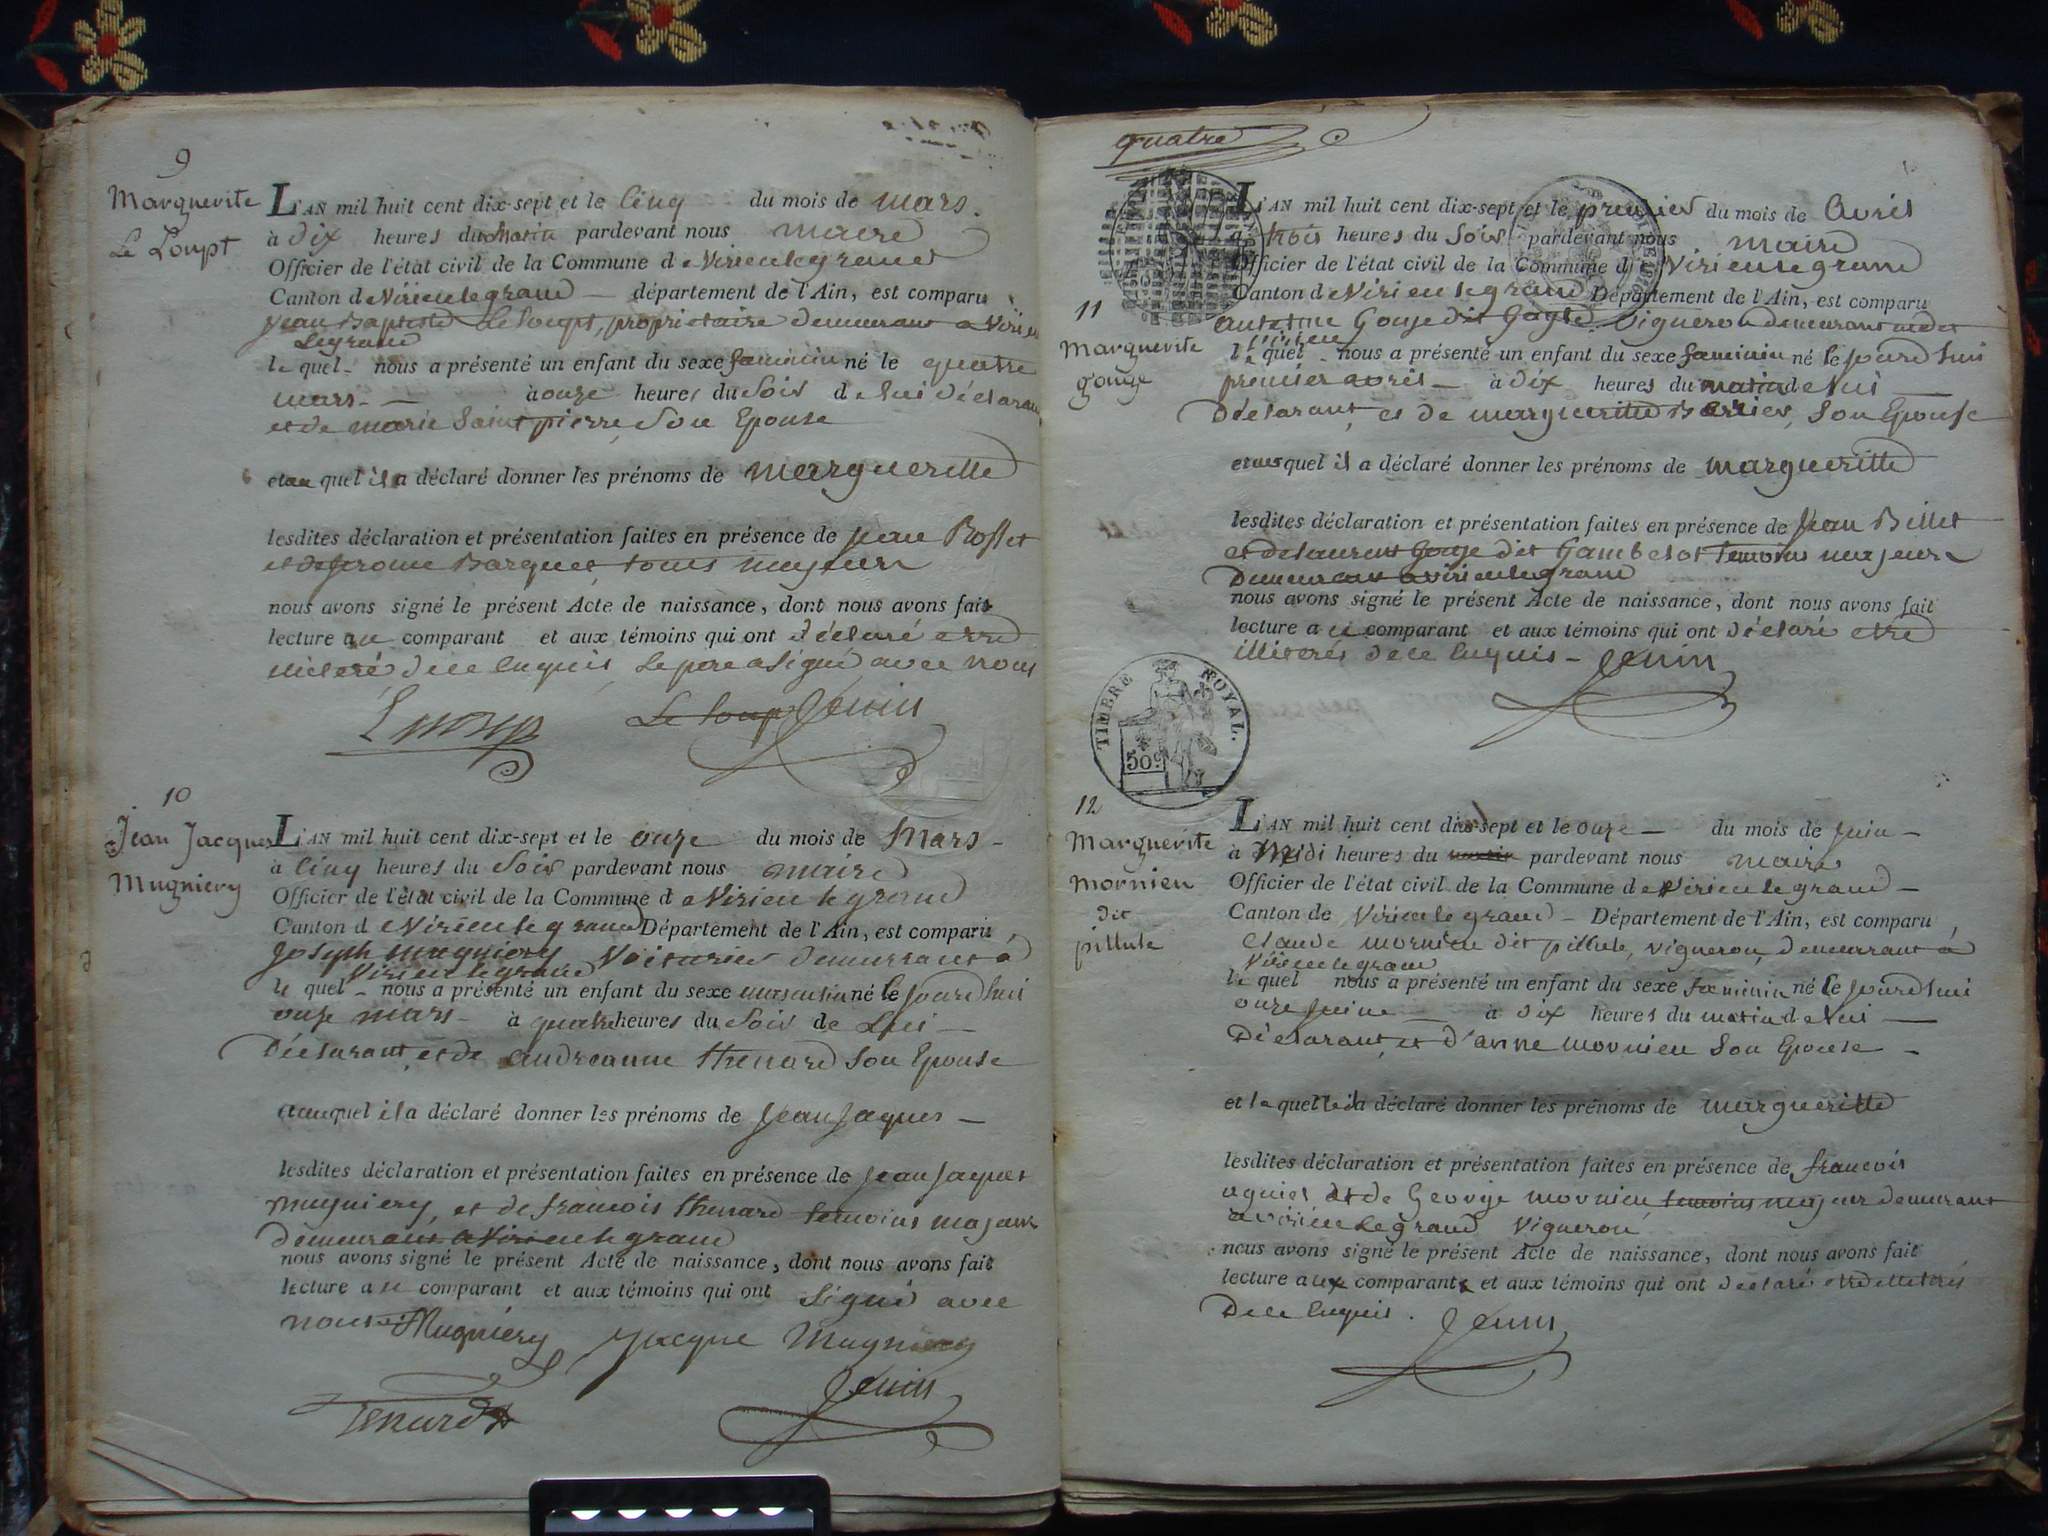 9
Marguerite
Le Loupt
L'AN mil huit cent dix-sept et le cinq du mois de mars
à dix heures du matin pardevant nous maire
Officier de l'état civil de la Commune de Virieulegrand
Canton de Virieulegrand département de l'Ain, est comparu
Jean Baptiste Le Loupt, proprietaire demeurant a Virieu
Legrand
le quel nous a présenté un enfant du sexe faminin né le quatre
mars à onze heures du soir de lui déclarant
et de marie Saint pierre, Son Epouse
et au quel il a déclaré donner les prénoms de margueritte
lesdites déclaration et présentation faites en présence de Jean Rosset
et de Jerome Barquet, tous majeurs
nous avons signé le présent Acte de naissance, dont nous avons fait
lecture au comparant et aux témoins qui ont déclaré etre
de ce enquis, Le pere a Signé avec nous
Le Loup Jenin
10
Jean Jacques
Mugniery
L'AN mil huit cent dix-sept et le onze du mois de Mars
à cinq heures du Soir pardevant nous maire
Officier de l'état civil de la Commune de Virieu le grand
Canton de Virieu le grand Département de l'Ain, est comparu
Joseph mugniery Voiturier demeurant à
Virieu le grand
le quel nous a présenté un enfant du sexe masculin né le jourd'hui
onze mars à quatre heures du Soir de Lui
Déclarant, et de andreanne thenard Son Epouse
et auquel il a déclaré donner les prénoms de Jean Jaques
lesdites déclaration et présentation faites en présence de Jean Jaques
mugniery, et de francois thenard temoins majeurs
demeurant a Virieu le grand
nous avons signé le présent Acte de naissance, dont nous avons fait
lecture au comparant et aux témoins qui ont Signé avec
nous Mugniéry Jacque Mugniery
Jenin
Tenard
quatre
11
Marguerite
gouge
L'AN mil huit cent dix-sept et le premier du mois de Avril
à trois heures du Soir pardevant nous maire
Officier de l'état civil de la Commune de Virieulegrand
Canton de Virieu le grand Département de l'Ain, est comparu
antoine Gouje dit Vigneron demeurant
le quel nous a présenté un enfant du sexe faminin né le jourd'hui
premier avril à dix heures du matin de lui
Déclarant, et de margueritte Son Epouse
quel il a déclaré donner les prénoms de margueritte
lesdites déclaration et présentation faites en présence de Jean Billet
et de laurent Gouje dit Gambelot temoins majeurs
Demeurant a virieulegrand
nous avons signé le présent Acte de naissance, dont nous avons fait
lecture a ce comparant et aux témoins qui ont déclaré etre
illiterés de ce Enquis Jenin
TIMBRE ROYAL.
50c
12
Marguerite
mornieu
dit
pillule
L'AN mil huit cent dix-sept et le onze du mois de juin
à Midi heures du pardevant nous maire
Officier de l'état civil de la Commune de Virieu le grand
Canton de Virieu le grand Département de l'Ain, est comparu
Claude mornieu dit pillule, vigneron, demeurant à
Virieulegrand
le quel nous a présenté un enfant du sexe faminin né le jourd'hui
onze juin à dix heures du matin de lui
Déclarant, et d'anne mornieu Son Epouse
et la quelle il a déclaré donner les prénoms de margueritte
lesdites déclaration et présentation faites en présence de francois
et de George mornieu temoins majeurs demeurant
a virieu le grand Vigneron
nous avons signé le présent Acte de naissance, dont nous avons fait
lecture aux comparants et aux témoins qui ont déclaré etre illiterés
De ce Enquis. Jenin